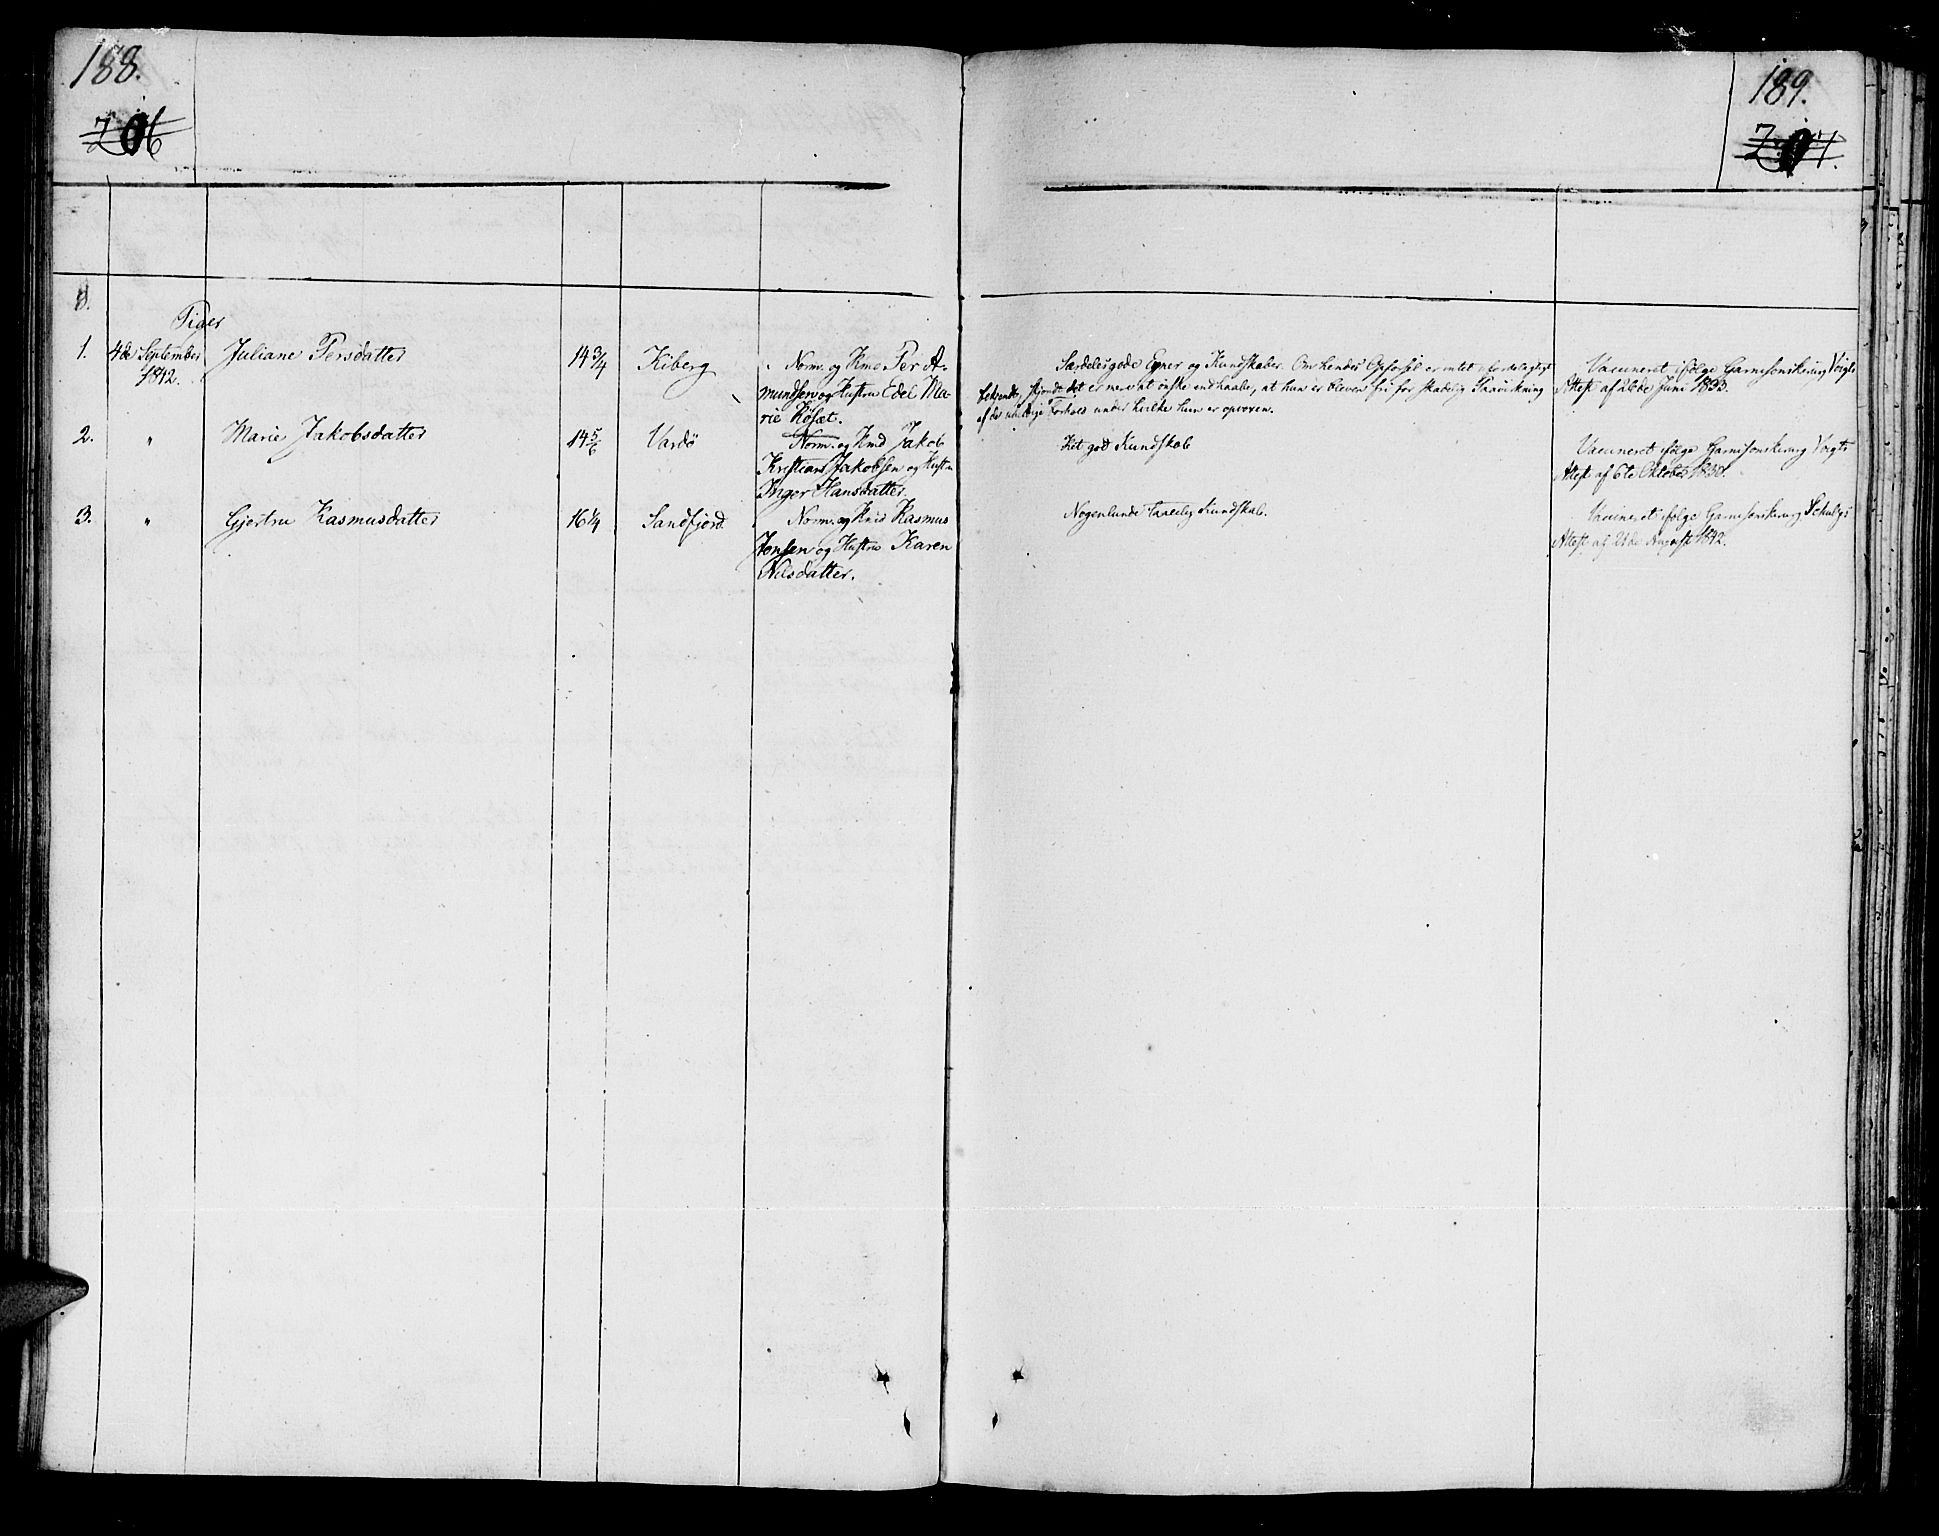 188.
206
189.
207.
Piger
1. 4de September Juliane Persdatter 14 3/4 Kiberg Norm. og Kmd Per A-
1842. mundsen og Hustru Edel Ma-
rie Kofæt.
Særdeles gode Evner og Kundskaber. Om hendes Opførsel er intet ufordelagtigt
bekjendt, skjøndt det er mere at ønske end haabe, at hun er bleven fri for skadelig Paavirkning
af de uheldige Forhold under hvilke hun er opvoxen.
Vaccineret ifølge Garnisonskirurg Voigts
Attest af 26de Juni 1833.
2. " Marie Jakobsdatter 14 5/6 Vardö Norm. og Kmd Jakob
Kristian Jakobsen og Hustru
Inger Hansdatter.
Ret god Kundskab
Vaccineret ifølge Garnisonskirurg Voigts
Attest af 6te Oktober 1830.
3. " Gjertru Rasmusdatter 16 1/4 Sandfjord Norm. og Kmd Rasmus
Jensen og Hustru Karen
Nilsdatter.
Nogenlunde taalelig Kundskab.
Vaccineret ifølge Garnisonskirurg Schulzes
Attest af 21de August 1842.